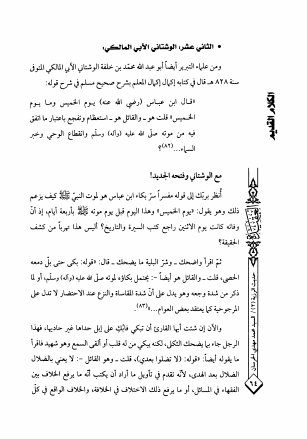 • الثاني عشر: الوشتاني الأبي المالكي:
ومن علماء التبرير أيضاً أبو عبد الله محمّد بن خلفة الوشتاني الآبي المالكي المتوفى
سنة ٨٢٨ هـ قال في كتابه إكمال إكمال المعلم بشرح صحيح مسلم في شرح قوله:
«قـال ابن عبـاس (رضي الله عنه) يـوم الخميس ومـا يـوم
الخميس» قلت هو ـ والقائل هو ـ استعظام وتفجع باعتبار ما اتفق
فيه من موته صلّى الله عليه (وآله) وسلّم وانقطاع الوحي وخبر
السماء...(٨٢)
مع الوشتاني وفتحه الجديد!
أنظر بربّك إلى قوله مفسراً سرّ بكاء ابن عباس هو لموت النبيّ ﷺ كيف يزعم
ذلك وهو يقول: «يوم الخميس» وهذا اليوم قبل يوم موته ﷺ بأربعة أيام، إذ أنّ
وفاته كانت يوم الاثنين راجع كتب السيرة والتاريخ؟ أليس هذا تهرباً من كشف
الحقيقة؟
ثمّ اقرأ واضحك ـ وشرّ البلية ما يضحك ـ قال: «قوله: بكى حتى بلّ دمعه
الحصى، قلت ـ والقائل هو أيضاً ـ: يحتمل بكاؤه لموته صلّى الله عليه (وآله) وسلّم، أو لما
ذكر من شدة وجعه وهو يدل على أنّ شدة المقاساة والنزع عند الاحتضار لا تدل على
المرجوحية كما يعتقد بعض العوام...»(٨٣)
والآن إن شئت أيها القارئ أن تبكي فابك على إبل حداها غير حاديها، فهذا
الرجل جاء بما يضحك الثكلى، لكنه يبكي من له قلب أو ألقى السمع وهو شهيد فاقرأ
ما يقوله أيضاً: «قوله: (لا تضلّوا بعدي)، قلت ـ وهو القائل ـ: يعني بالضلال
الضلال بعد الهدى، لأنّه تقدم في تأويل ما أراد أن يكتب أنّه ما يرفع الخلاف بين
الفقهاء في المسائل، أو ما يرفع ذلك الاختلاف في الخلافة، والخلاف الواقع في كلّ
٦٤